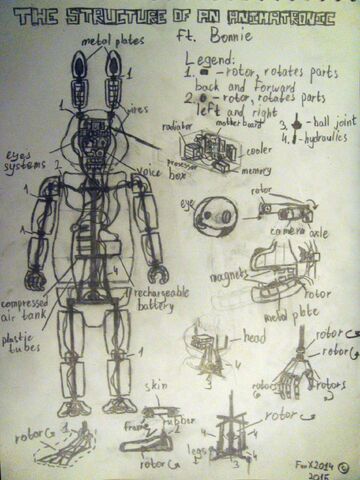 THE STRUCTURE OF AN ANIMATRONIC
ft. Bonnie
metal plates
Legend:
1. - rotor, rotates parts
back and forward
2. - rotor, rotates parts
left and right
3. - ball joint
4. - hydraulics
1
1
wires
eyes
systems
2
voice
box
radiator
mother board
processor
cooler
memory
1
1
eye
rotor
camera
axle
magnets
rotor
metal plate
4
4
compressed
air tank
rechargeable
battery
plastic
tubes
1
1
head
4
3
rotor
rotor
rotors
rotors
skin
frame
rubber
rotor
1
rotor
rotor
4
4
legs
3
rotor
FonX2014 ©
2015